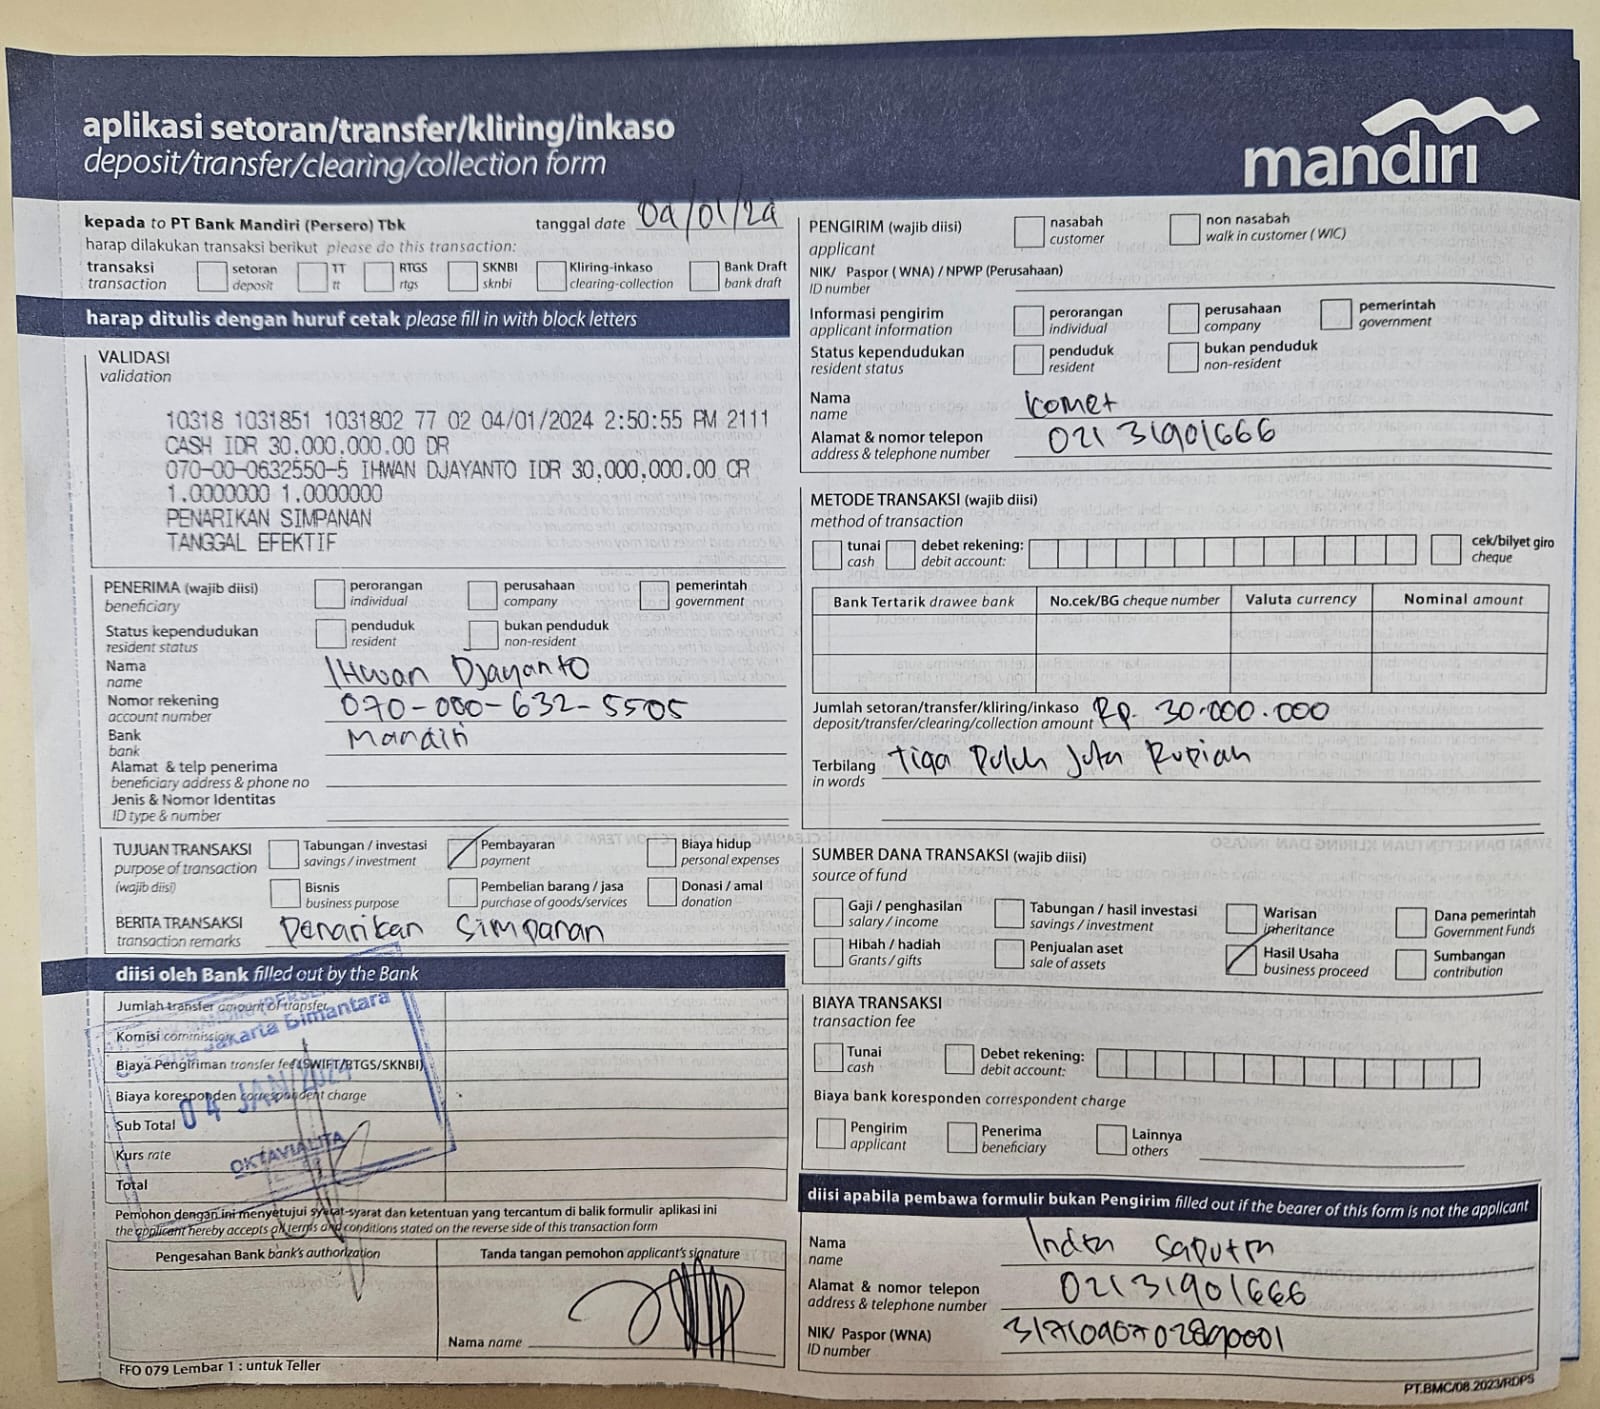 aplikasi setoran/transfer/kliring/inkaso
deposit/transfer/clearing/collection form
mandırı
kepada to PT Bank Mandiri (Persero) Tbk
tanggal date 04/01/24
harap dilakukan transaksi berikut please do this transaction:
transaksi transaction
setoran deposit
TT tt
RTGS rtgs
SKNBI sknbi
Kliring-inkaso clearing-collection
Bank Draft bank draft
harap ditulis dengan huruf cetak please fill in with block letters
VALIDASI
validation
10318 1031851 1031802 77 02 04/01/2024 2:50:55 PM 2111
CASH IDR 30.000.000.00 DR
070-00-0632550-5 IHWAN DJAYANTO IDR 30,000,000.00 CR
1.0000000 1.0000000
PENARIKAN SIMPANAN
TANGGAL EFEKTIF
PENERIMA (wajib diisi)
beneficiary
perorangan individual
perusahaan company
pemerintah government
Status kependudukan
resident status
penduduk resident
bukan penduduk non-resident
Nama
name
IHwan Djayanto
Nomor rekening
account number
070-000-632-5505
Bank
bank
Mandiri
Alamat & telp penerima
beneficiary address & phone no
Jenis & Nomor Identitas
ID type & number
TUJUAN TRANSAKSI
purpose of transaction
(wajib diisi)
Tabungan / investasi savings / investment
Pembayaran payment
Biaya hidup personal expenses
Bisnis business purpose
Pembelian barang / jasa purchase of goods/services
Donasi / amal donation
BERITA TRANSAKSI
transaction remarks
Penarikan Simpanan
diisi oleh Bank filled out by the Bank
Jumlah transfer amount of transfer
Komisi commission
Biaya Pengiriman transfer fee (SWIFT/RTGS/SKNBI)
Biaya koresponden correspondent charge
Sub Total
Kurs rate
Total
Jakarta Bimantara
04 JAN 2024
OKTAVIALITA
Pemohon dengan ini menyetujui syarat-syarat dan ketentuan yang tercantum di balik formulir aplikasi ini
the applicant hereby accepts all terms and conditions stated on the reverse side of this transaction form
Pengesahan Bank bank's authorization
Tanda tangan pemohon applicant's signature
Nama name
FFO 079 Lembar 1 : untuk Teller
PENGIRIM (wajib diisi)
applicant
nasabah customer
non nasabah walk in customer ( WIC)
NIK/ Paspor ( WNA) / NPWP (Perusahaan)
ID number
Informasi pengirim
applicant information
perorangan individual
perusahaan company
pemerintah government
Status kependudukan
resident status
penduduk resident
bukan penduduk non-resident
Nama
name
Komet
Alamat & nomor telepon
address & telephone number
021 31901666
METODE TRANSAKSI (wajib diisi)
method of transaction
tunai cash
debet rekening: debit account:
cek/bilyet giro cheque
Bank Tertarik drawee bank
No.cek/BG cheque number
Valuta currency
Nominal amount
Jumlah setoran/transfer/kliring/inkaso
deposit/transfer/clearing/collection amount
Rp. 30.000.000
Terbilang
in words
Tiga Puluh Juta Rupiah
SUMBER DANA TRANSAKSI (wajib diisi)
source of fund
Gaji / penghasilan salary / income
Tabungan / hasil investasi savings / investment
Warisan inheritance
Dana pemerintah Government Funds
Hibah / hadiah Grants / gifts
Penjualan aset sale of assets
Hasil Usaha business proceed
Sumbangan contribution
BIAYA TRANSAKSI
transaction fee
Tunai cash
Debet rekening: debit account:
Biaya bank koresponden correspondent charge
Pengirim applicant
Penerima beneficiary
Lainnya others
diisi apabila pembawa formulir bukan Pengirim filled out if the bearer of this form is not the applicant
Nama
name
Indra Saputra
Alamat & nomor telepon
address & telephone number
02131901666
NIK/ Paspor (WNA)
ID number
PT.BMC/08.2023/RDPS